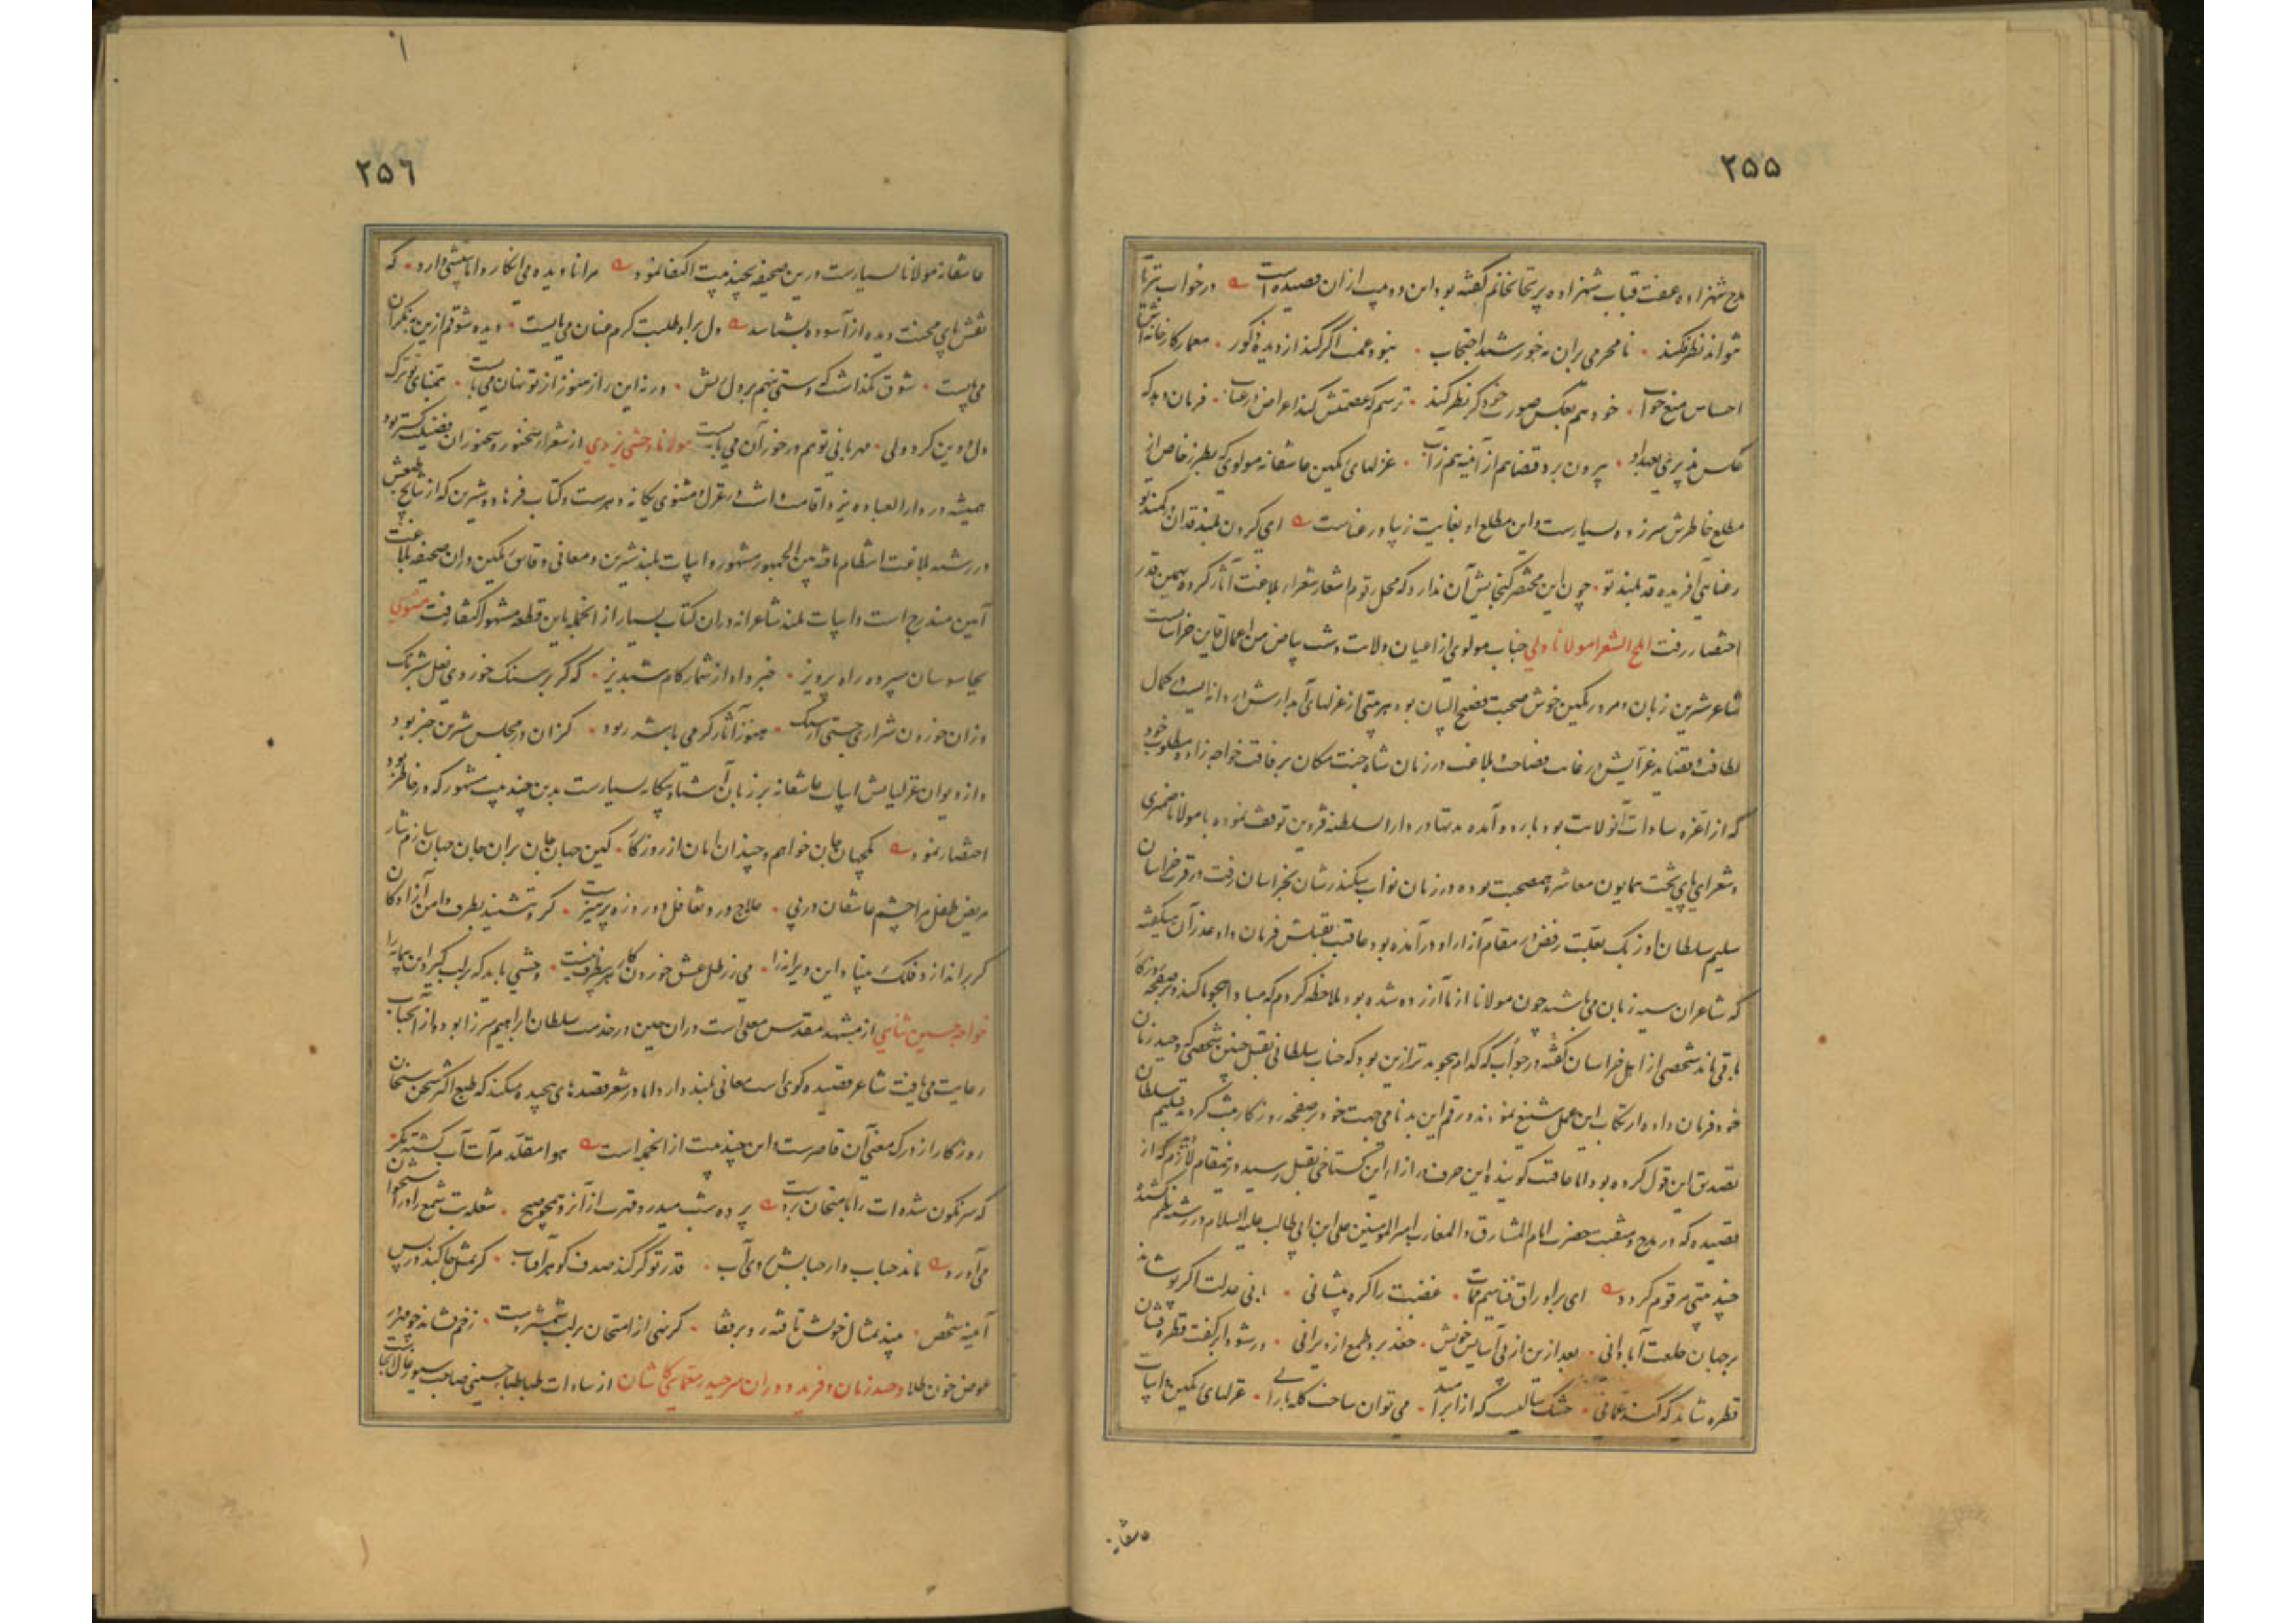 ۲۵۵
مدح شهزاده عفت قباب شهزاده پریخانخانم گفته بود این دو بیت از ان قصیده است در خواب تر تا
نتواند نظر فکند نامحرمی بران مه خورشید احتجاب نبود عجب اگر کند از دیده ذکور معمار کارخانه
احساس منع خواب خود هم بعکس صورت خود گر نظر کند ترسم که عصمتش کند اعراض در عتاب فرمان دهد که
عکس پذیری بعید او بیرون برد قضا هم از آینه هم ز آب غزلهای نمکین عاشقانه مولوی که بطرز خاص از
مطلع خاطرش سر زده بسیارست و این مطلع او بغایت زیبا و رعناست ای گردن بلند قدان در کمند تو
رعنایی آفریده قد بلند تو چون این مختصر گنجایش آن ندارد که محل رقوم اشعار شعراء بلاغت آثار گردد بهمین قدر
اختصار رفت املح الشعرا مولانا ولی جناب مولوی از اعیان ولایت دشت بیاض من اعمال قاین خراسانست
شاعر شیرین زبان و مرد نمکین خوش صحبت فصیح اللسان بود هر بیتی از غزلهای آبدارش در دانه ایست در کمال
لطافت و قصاید غرایش در غایت فصاحت و بلاغت در زمان شاه جنت مکان برفاقت خواجه زاده مطلوب خود
که از اعزه سادات آنولایت بود باردو آمده مدتها در دار السلطنه قزوین توقف نموده با مولانا ضمیری
و شعرای پای تخت همایون معاشر و هم صحبت بوده در زمان نواب سکندر شان بخراسان رفت در قرخ خراسان
سلیم سلطان اوزبک بعلت رفض در مقام آزار او در آمده بود عاقبت بقتلش فرمان داد عذر آن میگفته
که شاعران سیه زبان می باشند چون مولانا از ما آزرده شده بود ملاحظه کردم که مبادا هجو ما کند و بر صفحه روزگار
باقی ماند شخصی از اهل خراسان گفته در جواب که کدام هجو بدتر ازین بود که جناب سلطانی بقتل چنین شخصی که وحید زمان
خود فرمان داده ارتکاب این عمل شنیع نمودند و رقم این بدنامی جهت خود بر صفحه روزگار ثبت کردند سلیم سلطان
تصدیق این قول کرده بود اما عاقبت گوینده این حرف در ازای این گستاخی بقتل رسید در ین مقام لازم که از
قصیده که در مدح و منقبت حضرت امام المشارق و المغارب امیر المومنین علی ابن ابی طالب علیه السلام در رشته نظم کشیده
چند بیتی مرقوم گردد ای براوراق غضبت را گره پیشانی بانی عدلت اگر پوشاند
بر جهان خلعت آبادانی بعد ازین از پی آسایش خویش جغد برد طمع از ویرانی ور شود ابر کفت قطره فشان
قطره شاید که کند عمانی خشک سالیست که از ابر امید می توان ساخت گله بارانی غزلهای نمکین و ابیات
عاشقانه
۲۵۶
عاشقانه مولانا بسیارست درین صحیفه بچند بیت اکتفا نمود مرا نادیده می انگارد اما بینشی دارد که
نقش پای محنت دیده از آسوده بشناسد دل براه طلبت گرم عنان می بایست دیده شوقم ازین به نگران
می بایست شوق نگذاشت که دستی بنهم بر دل ریش ورنه این راز هنوز از تو نهان می بایست بتمنای تو ترک
دل و دین کرد ولی مهربانی تو هم در خور آن می بایست مولانا وحشی یزدی از شعراء سخنور و سخنوران فضیلت گستر بود
همیشه در دار العباده یزد اقامت داشت در غزل و مثنوی یگانه دهرست و کتاب فرهاد و شیرین که از نتایج طبعش
در رشته بلاغت انتظام یافته بین الجمهور مشهور و ابیات بلند شیرین و معانی دقایق نمکین در ان صحیفه بلاغت
آیین مندرج است و ابیات بلند شاعرانه دران کتاب بسیار از انجمله باین قطعه مشهور اکتفا رفت مثنوی
بجاسوسان سپرده راه پرویز خبر دار از شمار گام شبدیز که گر بر سنگ خوردی نعل شبرنگ
وزان خوردن شراری جستی از سنگ هنوز آثار گرمی با شرر بود کزان در مجلس شیرین خبر بود
و از دیوان غزلیاتش ابیات عاشقانه بر زبان آشنا و بیگانه بسیارست بدین چند بیت مشهور که در خاطر بود
اختصار نمود یکجهان جان خواهم و چندان امان از روزگار کین جهان جان بران جان جهان سازم نثار
مریض طفل مزاجند عاشقان ورنی علاج درد تغافل دو روزه پرهیزست گرد ننشیند بطرف دامن آزادگان
گر براندازد فلک بنیاد این ویرانه را می ز رطل عشق خوردن کار هر بی ظرف نیست وحشی باید که بر لب گیرد این پیمانه را
خواجه حسین ثنایی از مشهد مقدس معلی است دران حین در خدمت سلطان ابراهیم میرزا بود و از آنجناب
رعایت می یافت شاعر قصیده گوی است معانی بلند دارد اما در شعر قصدهای پیچیده میکند که طبع اکثر سخن سنجان
روزگار از درک معنی آن قاصرست و این چند بیت از انجمله است هوا مقلد مرآت آب گشته مگر
که سر نگون شده ات را بامتحان برداشت پرده شب میدرد قهرت از آنرو همچو صبح شعله ت شمع را در استخوان
می آورد ماند حباب وار حبابش روی آب قدر تو گر کند صدف گوهر آفتاب گر مثل جا کند در پس
آینه شخص بیند تمثال خویش تافته رو بر قفا گر نهی از امتحان بر لب شمشیر دست زخم فشاند چو مهر
عوض خون طلا وحید زمان و فرید دوران میر حیدر معمایی کاشان از سادات طباطبا حسینی صاحب سیورغال آنجا